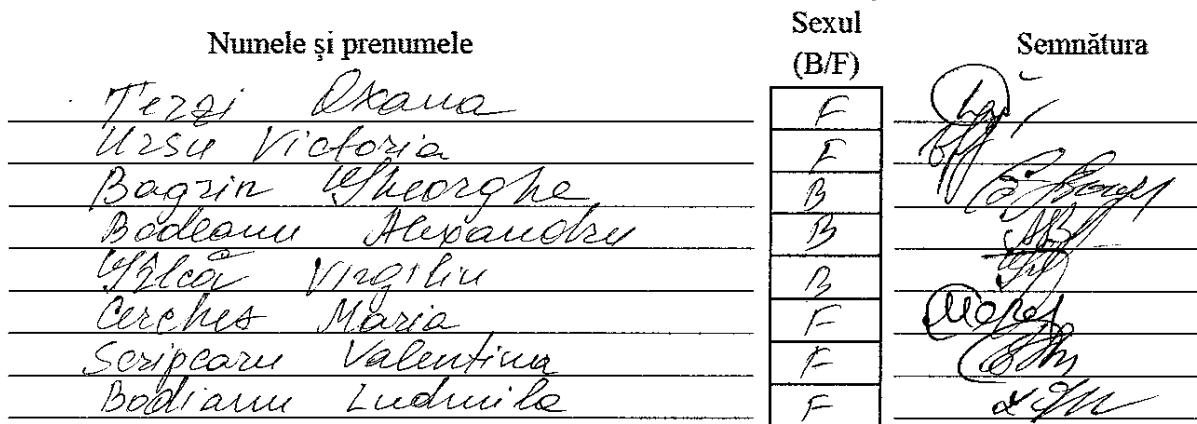 Numele şi prenumele Sexul (B/F) Semnătura
Terzi Oxana F
Ursu Victoria F
Bagrin Gheorghe B
Bodeanu Alexandru B
Gîlcă Virgiliu B
Cerches Maria F
Scripcaru Valentina F
Bodianu Ludmila F